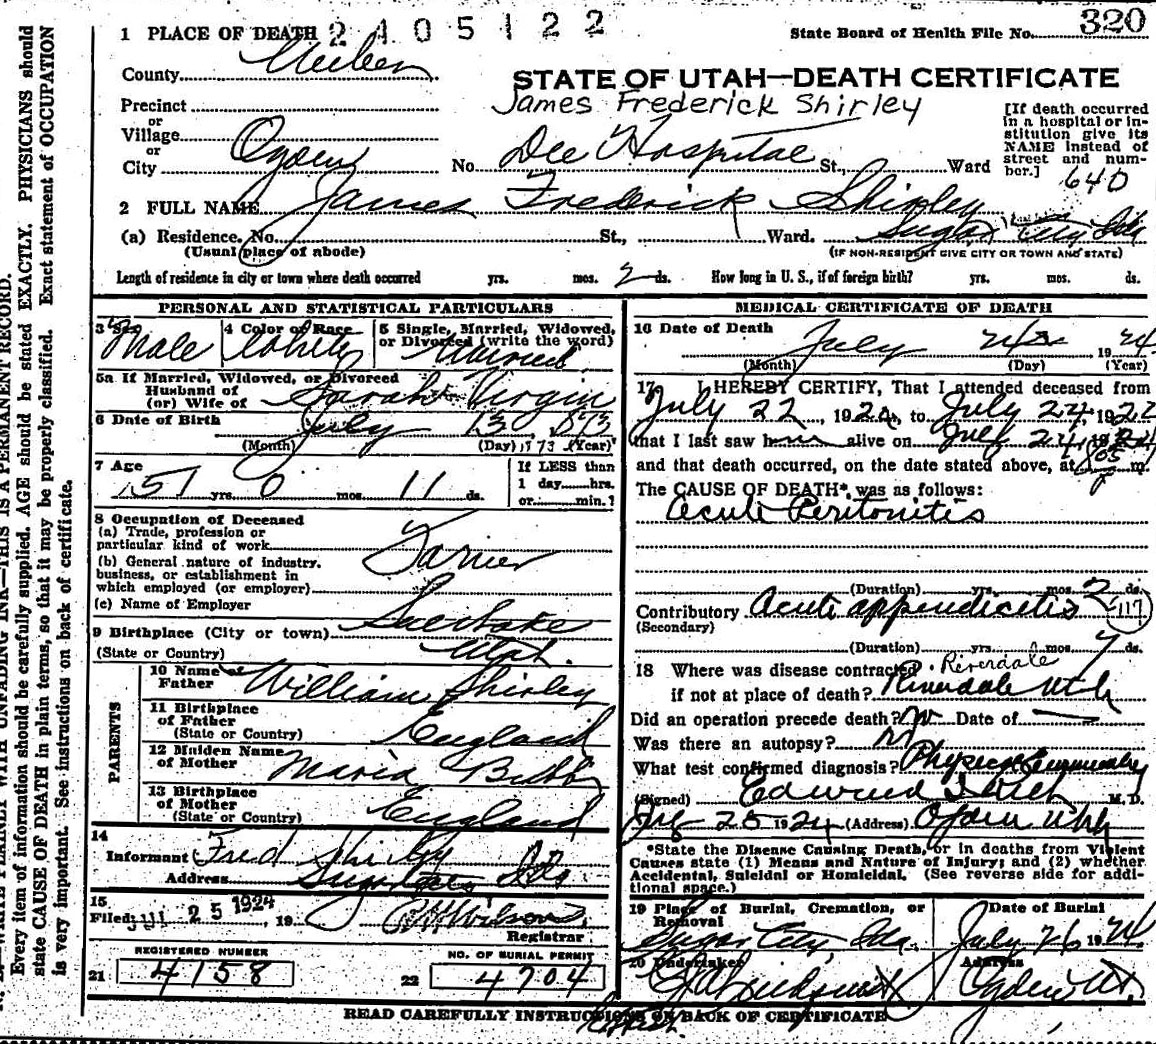 1 PLACE OF DEATH 2405122 State Board of Health File No. 320
County Weber
STATE OF UTAH—DEATH CERTIFICATE
Precinct
James Frederick Shirley
or
Village
or
City Ogden No. Dee Hospital St., Ward
[If death occurred
in a hospital or in-
stitution give its
NAME instead of
street and num-
ber.] 640
2 FULL NAME James Frederick Shirley
(a) Residence. No. St., Ward. Sugar City Ida
(Usual place of abode) (IF NON-RESIDENT GIVE CITY OR TOWN AND STATE)
Length of residence in city or town where death occurred yrs. mos. 2 ds. How long in U. S., if of foreign birth? yrs. mos. ds.
PERSONAL AND STATISTICAL PARTICULARS
3 Sex Male
4 Color or Race White
5 Single, Married, Widowed,
or Divorced (write the word)
Married
5a If Married, Widowed, or Divorced
Husband of
(or) Wife of Sarah Virgin
6 Date of Birth July 13 1873
(Month) (Day) 1873 (Year)
7 Age 51 yrs. 0 mos. 11 ds.
If LESS than
1 day hrs.
or min.?
8 Occupation of Deceased
(a) Trade, profession or
particular kind of work Farmer
(b) General nature of industry.
business, or establishment in
which employed (or employer)
(c) Name of Employer
9 Birthplace (City or town)
(State or Country) Utah.
PARENTS
10 Name of
Father William Shirley
11 Birthplace
of Father
(State or Country) England
12 Maiden Name
of Mother Maria
13 Birthplace
of Mother
(State or Country) England
14
Informant Fred Shirley
Address Sugar City Ida
15
Filed JUL 25 1924, 19 Wilson
Registrar
REGISTERED NUMBER
21 4158
NO. OF BURIAL PERMIT
22 4704
MEDICAL CERTIFICATE OF DEATH
16 Date of Death July 24 1924
(Month) (Day) (Year)
17 I HEREBY CERTIFY, That I attended deceased from
July 22, 1924, to July 24, 1924
that I last saw him alive on July 24, 1924
and that death occurred, on the date stated above, at m.
The CAUSE OF DEATH*, was as follows:
Acute Peritonitis
(Duration) yrs. mos. 2 ds.
Contributory Acute appendicitis 117
(Secondary)
(Duration) yrs. mos. 7 ds.
18 Where was disease contracted Riverdale
if not at place of death? Riverdale Utah
Did an operation precede death? No Date of
Was there an autopsy? No
What test confirmed diagnosis? Physical
(Signed) Edward M. D.
25 1924 (Address) Ogden Utah
*State the Disease Causing Death, or in deaths from Violent
Causes state (1) Means and Nature of Injury; and (2) whether
Accidental, Suicidal or Homicidal. (See reverse side for addi-
tional space.)
19 Place of Burial, Cremation, or
Removal
Sugar City, Ida.
Date of Burial
July 26 1924
20 Undertaker
Address
Ogden Ut.
READ CAREFULLY INSTRUCTIONS ON BACK OF CERTIFICATE
WRITE PLAINLY WITH UNFADING INK—THIS IS A PERMANENT RECORD.
Every item of information should be carefully supplied. AGE should be stated EXACTLY. PHYSICIANS should
state CAUSE OF DEATH in plain terms, so that it may be properly classified. Exact statement of OCCUPATION
is very important. See instructions on back of certificate.